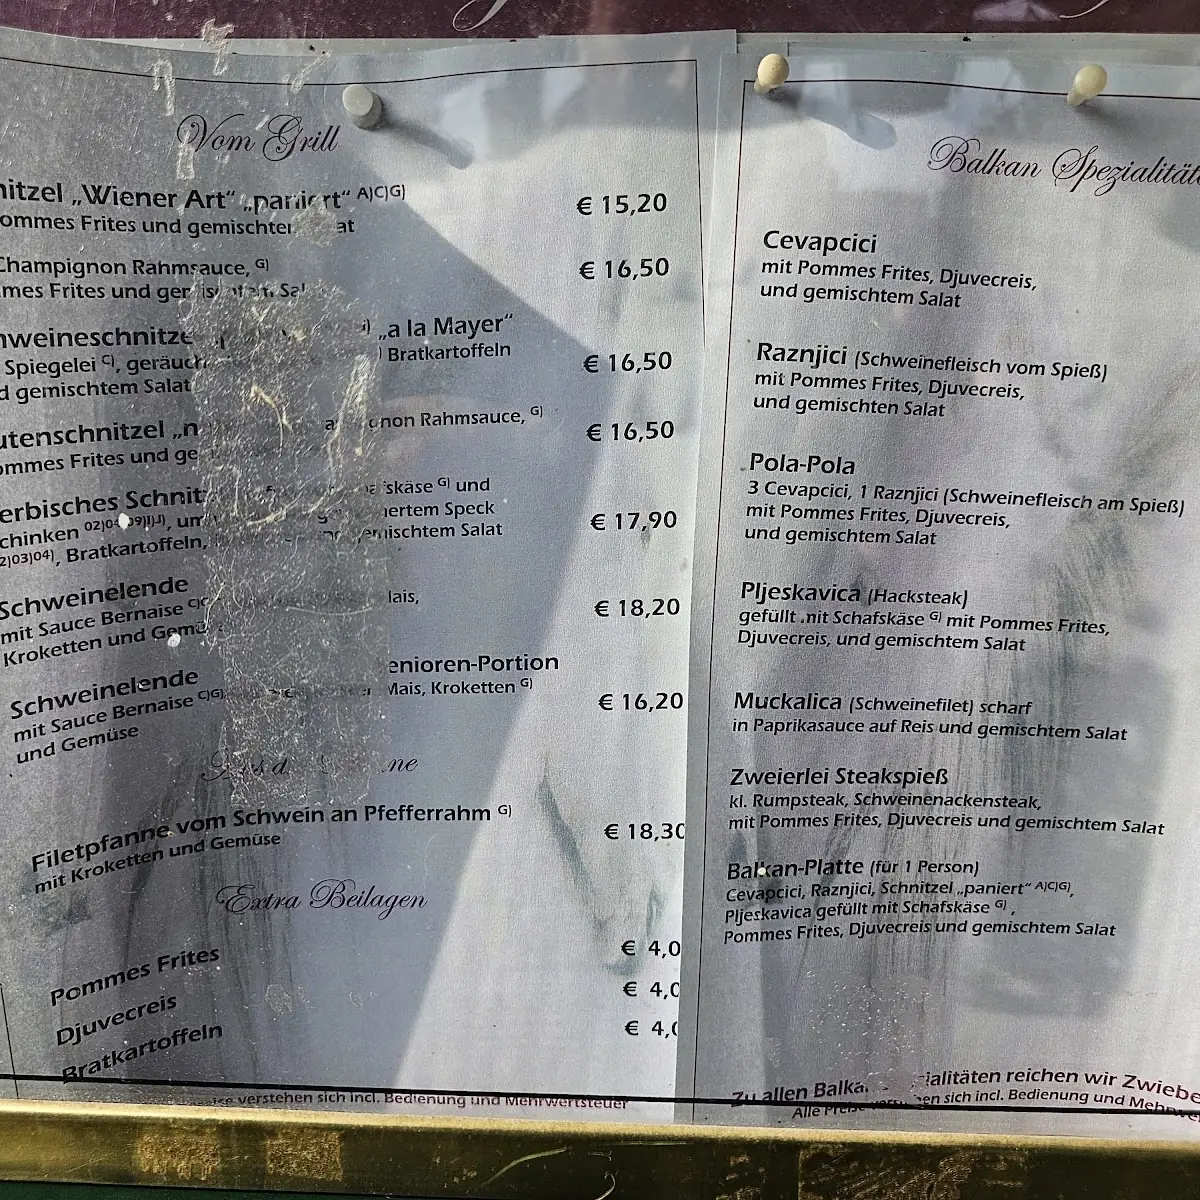 Vom Grill
nitzel „Wiener Art“ „paniert“ A)C)G)
ommes Frites und gemischter at
€ 15,20
Champignon Rahmsauce, G)
mes Frites und
€ 16,50
hweineschnitze „a la Mayer“
Spiegelei C), geräuch Bratkartoffeln
d gemischtem Salat
€ 16,50
utenschnitzel „n non Rahmsauce, G)
ommes Frites und ge
€ 16,50
erbisches Schnit skäse G) und
chinken um iertem Speck
2)03)04), Bratkartoffeln, emischtem Salat
€ 17,90
Schweinelende
mit Sauce Bernaise C)G lais,
Kroketten und Gemü
€ 18,20
Schweinelende enioren-Portion
mit Sauce Bernaise C)G) Mais, Kroketten G)
und Gemüse
€ 16,20
Filetpfanne vom Schwein an Pfefferrahm G)
mit Kroketten und Gemüse
€ 18,30
Extra Beilagen
Pommes Frites
€ 4,0
Djuvecreis
€ 4,0
Bratkartoffeln
€ 4,0
verstehen sich incl. Bedienung und Mehrwertsteuer
Balkan Spezialität
Cevapcici
mit Pommes Frites, Djuvecreis,
und gemischtem Salat
Raznjici (Schweinefleisch vom Spieß)
mit Pommes Frites, Djuvecreis,
und gemischten Salat
Pola-Pola
3 Cevapcici, 1 Raznjici (Schweinefleisch am Spieß)
mit Pommes Frites, Djuvecreis,
und gemischtem Salat
Pljeskavica (Hacksteak)
gefüllt mit Schafskäse G) mit Pommes Frites,
Djuvecreis, und gemischtem Salat
Muckalica (Schweinefilet) scharf
in Paprikasauce auf Reis und gemischtem Salat
Zweierlei Steakspieß
kl. Rumpsteak, Schweinenackensteak,
mit Pommes Frites, Djuvecreis und gemischtem Salat
Balkan-Platte (für 1 Person)
Cevapcici, Raznjici, Schnitzel „paniert“ A)C)G),
Pljeskavica gefüllt mit Schafskäse G) ,
Pommes Frites, Djuvecreis und gemischtem Salat
Zu allen Balka ialitäten reichen wir Zwiebe
Alle Preise en sich incl. Bedienung und Mehrwe